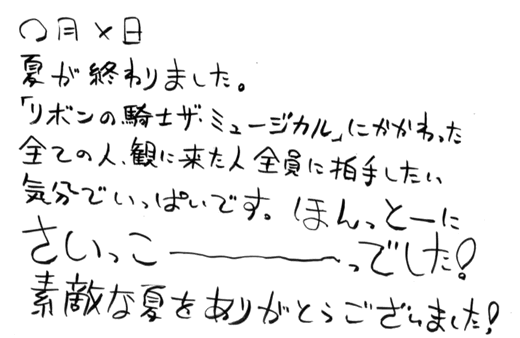 ○月×日
夏が終わりました。
「リボンの騎士ザ・ミュージカル」にかかわった
全ての人、観に来た人全員に拍手したい
気分でいっぱいです。ほんっとーに
さいっこーーーっでした!
素敵な夏をありがとうございました!